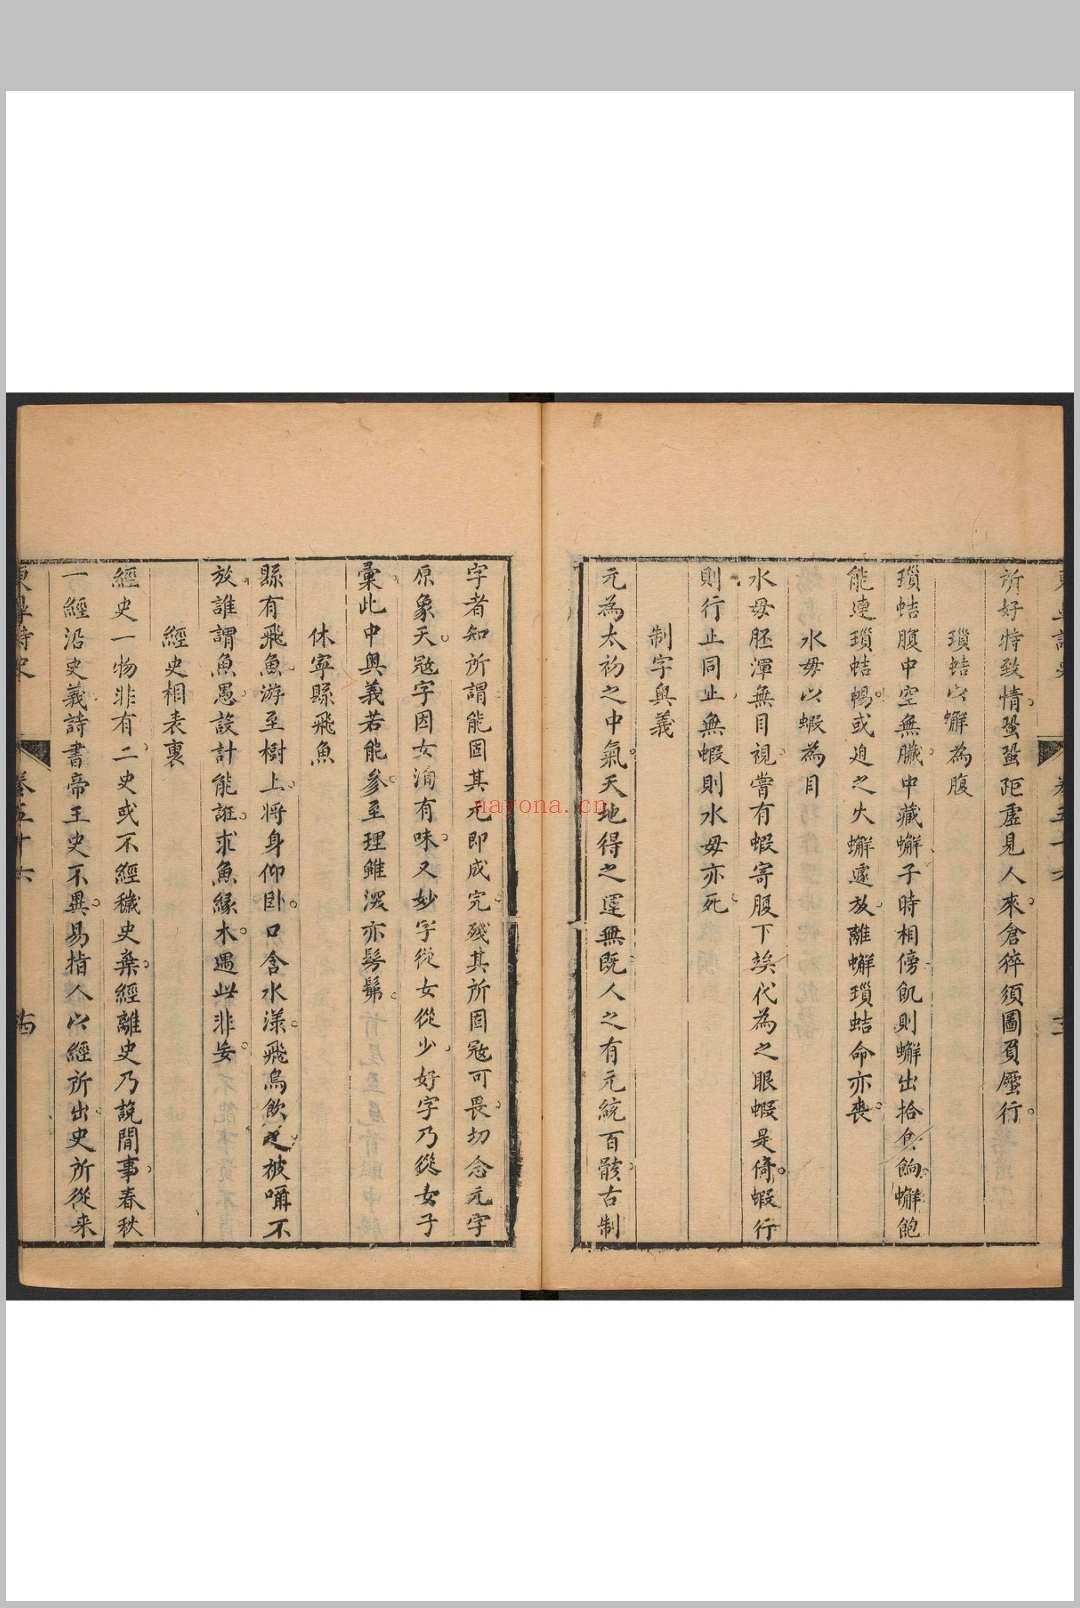 所好特致情蛩蛩距虛見人來倉猝須圖負蹷行
瑣蛣以蠏為腹
瑣蛣腹中空無臟中藏蠏子時相傍飢則蠏出拾食餉蠏飽
能連瑣蛣暢或迫之火蠏遽放離蠏瑣蛣命亦喪
水母以蝦為目
水母胚渾無目視嘗有蝦寄腹下族代為之眼蝦是倚蝦行
則行止同止無蝦則水母亦死
制字奧義
元為太初之中氣天地得之運無既人之有元統百骸古制
字者知所謂能固其元即成完殘其所固寇可畏切念元字
原象天寇字因女淪有味又妙字從女從少好字乃從女子
彙此中奧義若能參至理雖深亦髣髴
休寧縣飛魚
縣有飛魚游至樹上將身仰卧口含水漾飛鳥飲之被囓不
放誰謂魚愚設計能誑求魚緣木遇此非妄
經史相表裏
經史一物非有二史或不經穢史棄經離史乃說閒事春秋
一經沿史義詩書帝王史不異易指人以經所出史所從來
卷五十六
nayona.cn